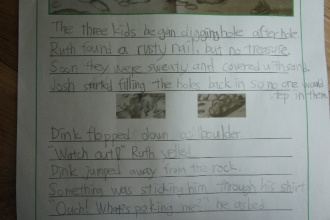 The three kids began digging hole after hole.
Ruth found a rusty nail, but no treasure.
Soon they were sweaty and covered with sand.
Josh started filling the holes back in so no one would
step in them.
Dink flopped down a boulder.
"Watch out!" Ruth yelled.
Dink jumped away from the rock.
Something was sticking him though his shirt.
"Ouch! What's poking me?" he asked.